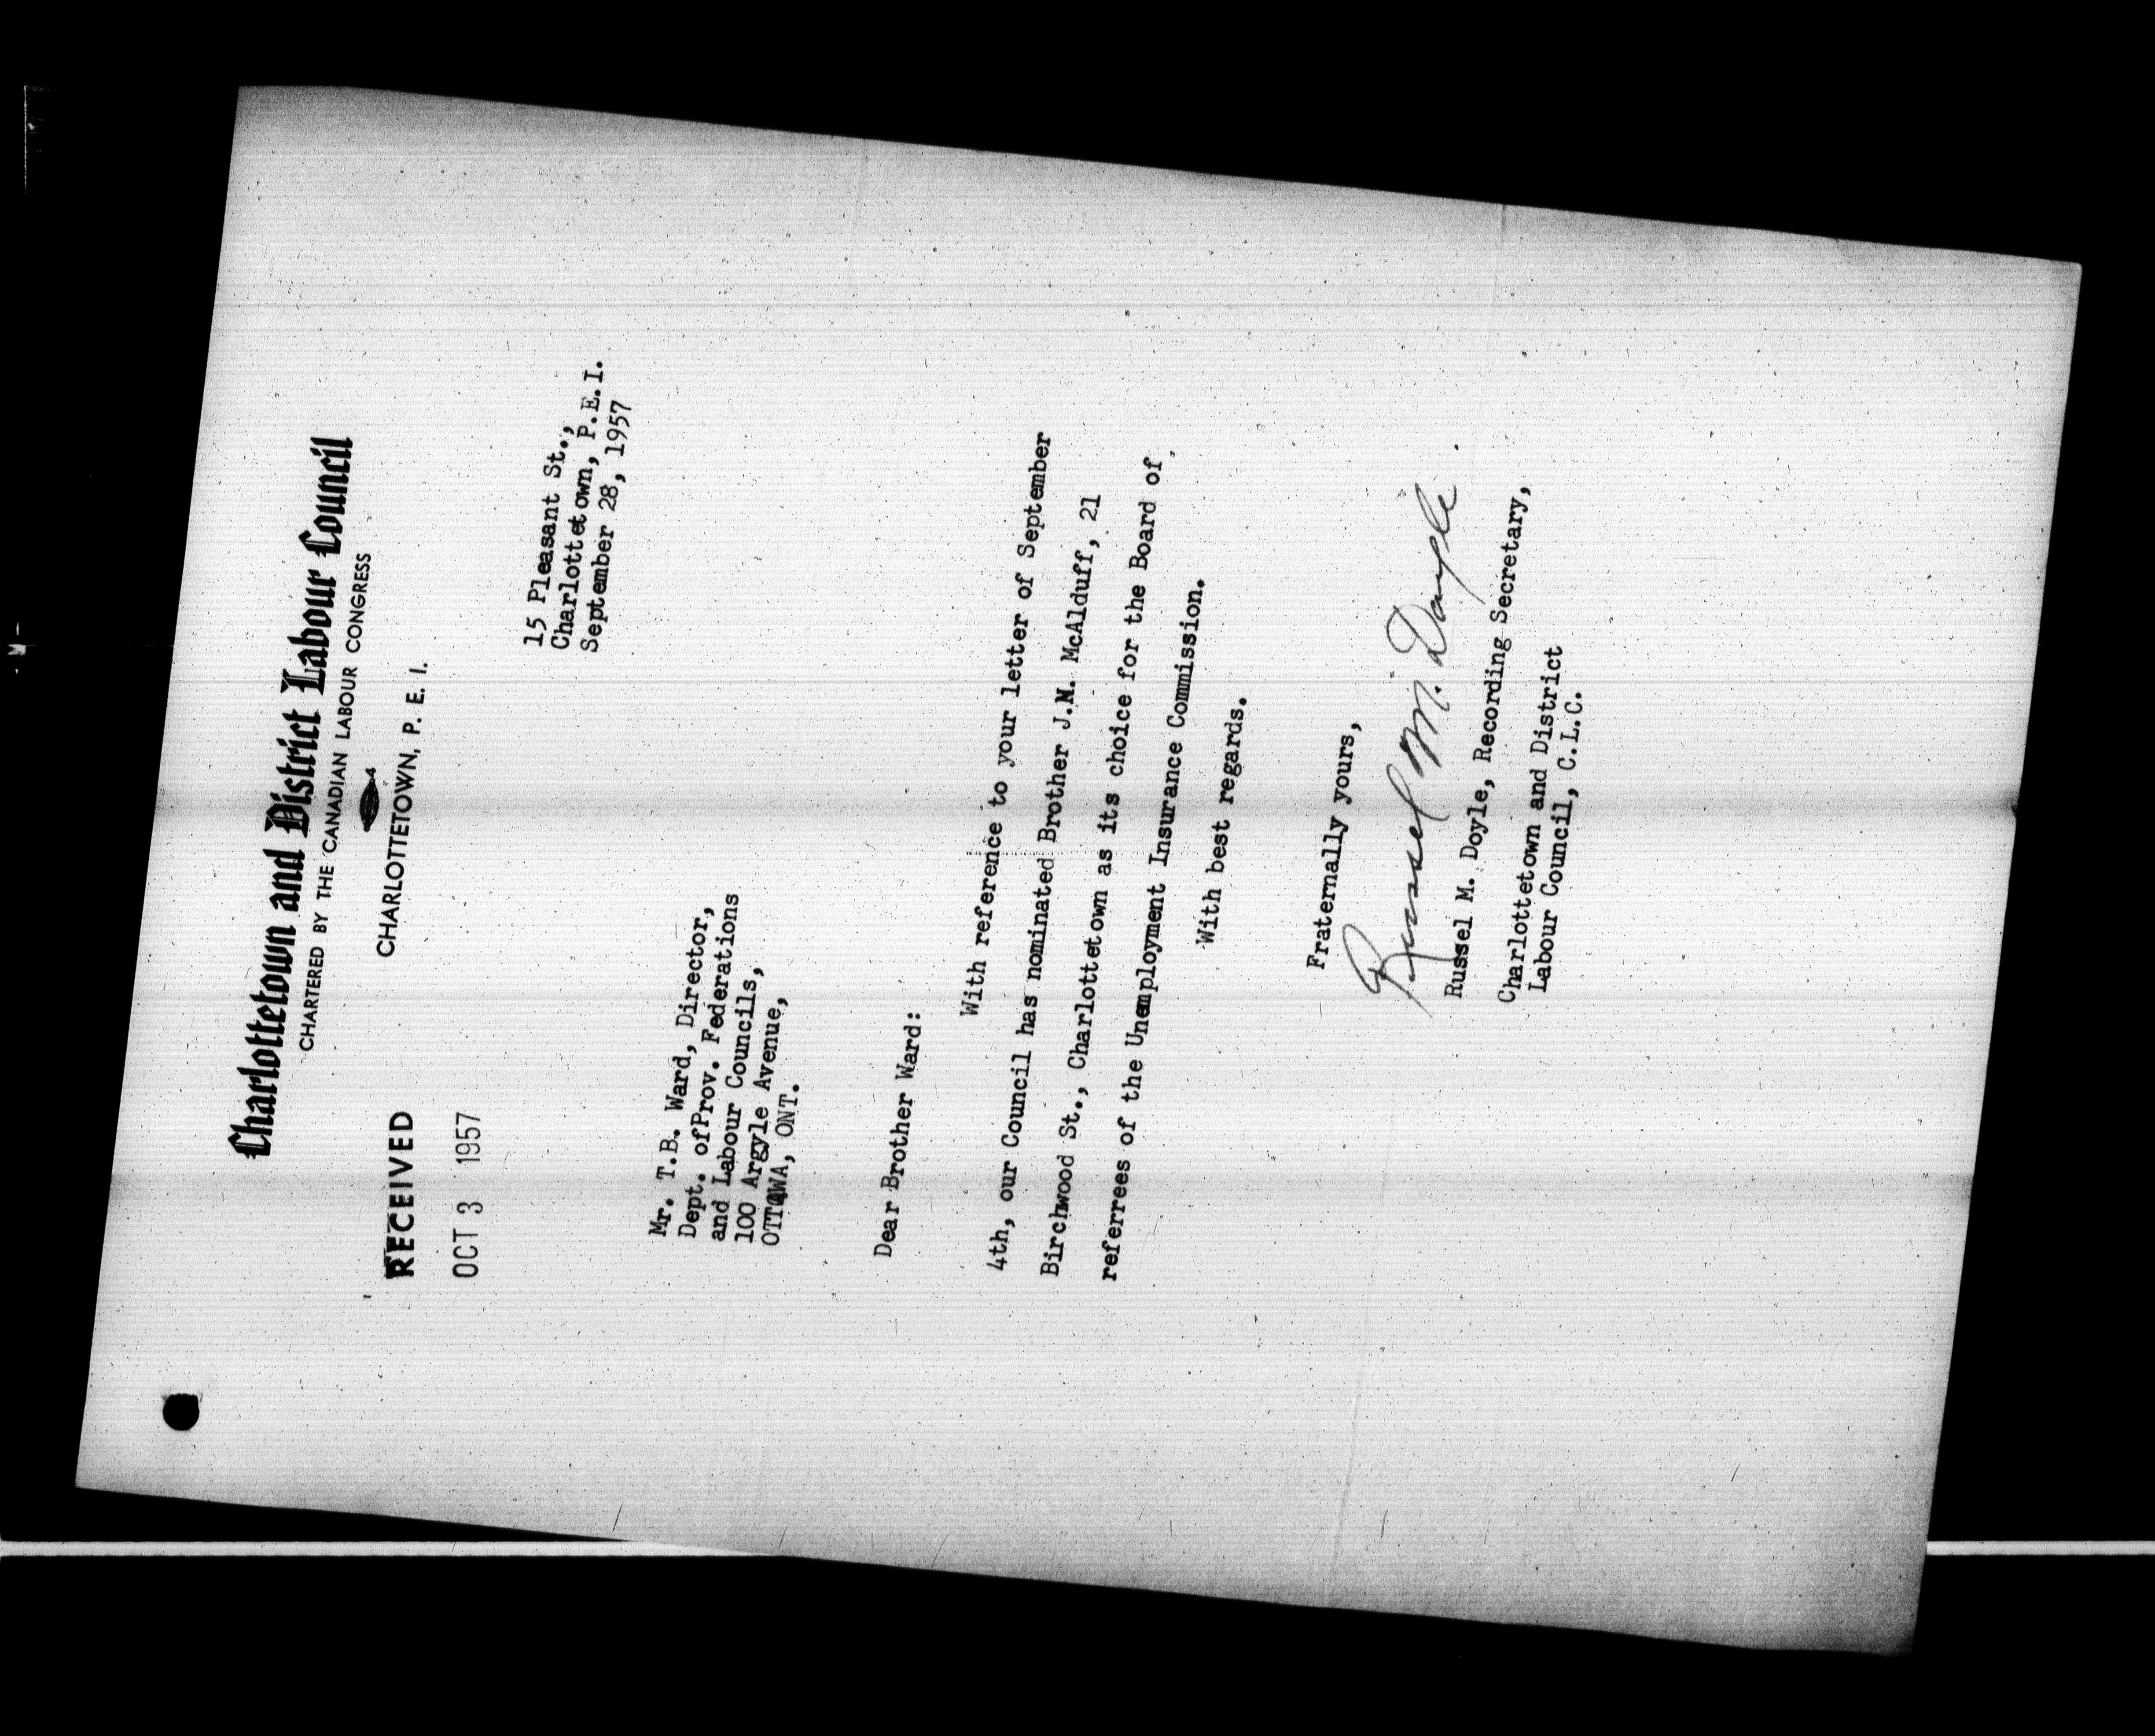 Charlottetown and District Labour Council
CHARTERED BY THE CANADIAN LABOUR CONGRESS
CHARLOTTETOWN, P. E. I.
RECEIVED
OCT 3 1957
15 Pleasant St.,
Charlottetown, P.E.I.
September 28, 1957
Mr. T.B. Ward, Director,
Dept. ofProv. Federations
and Labour Councils,
100 Argyle Avenue,
OTTAWA, ONT.
Dear Brother Ward:
With reference to your letter of September
4th, our Council has nominated Brother J.M. McAlduff, 21
Birchwood St., Charlottetown as its choice for the Board of
referrees of the Unemployment Insurance Commission.
With best regards.
Fraternally yours,
Russel M. Doyle
Russel M. Doyle, Recording Secretary,
Charlottetown and District
Labour Council, C.L.C.